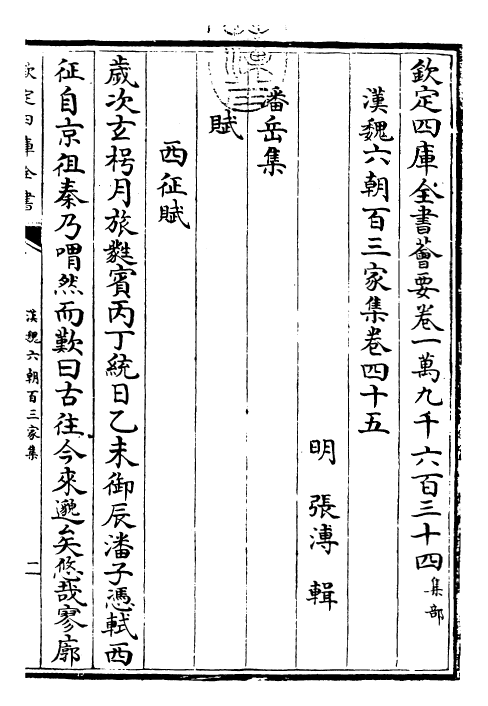 欽定四庫全書薈要卷一萬九千六百三十四集部
漢魏六朝百三家集卷四十五
明 張溥 輯
潘岳集
賦
西征賦
歲次玄枵月旅蕤賓丙丁統日乙未御辰潘子憑軾西
征自京徂秦乃喟然而歎曰古往今來邈矣悠哉寥廓
欽定四庫全書
漢魏六朝百三家集
二